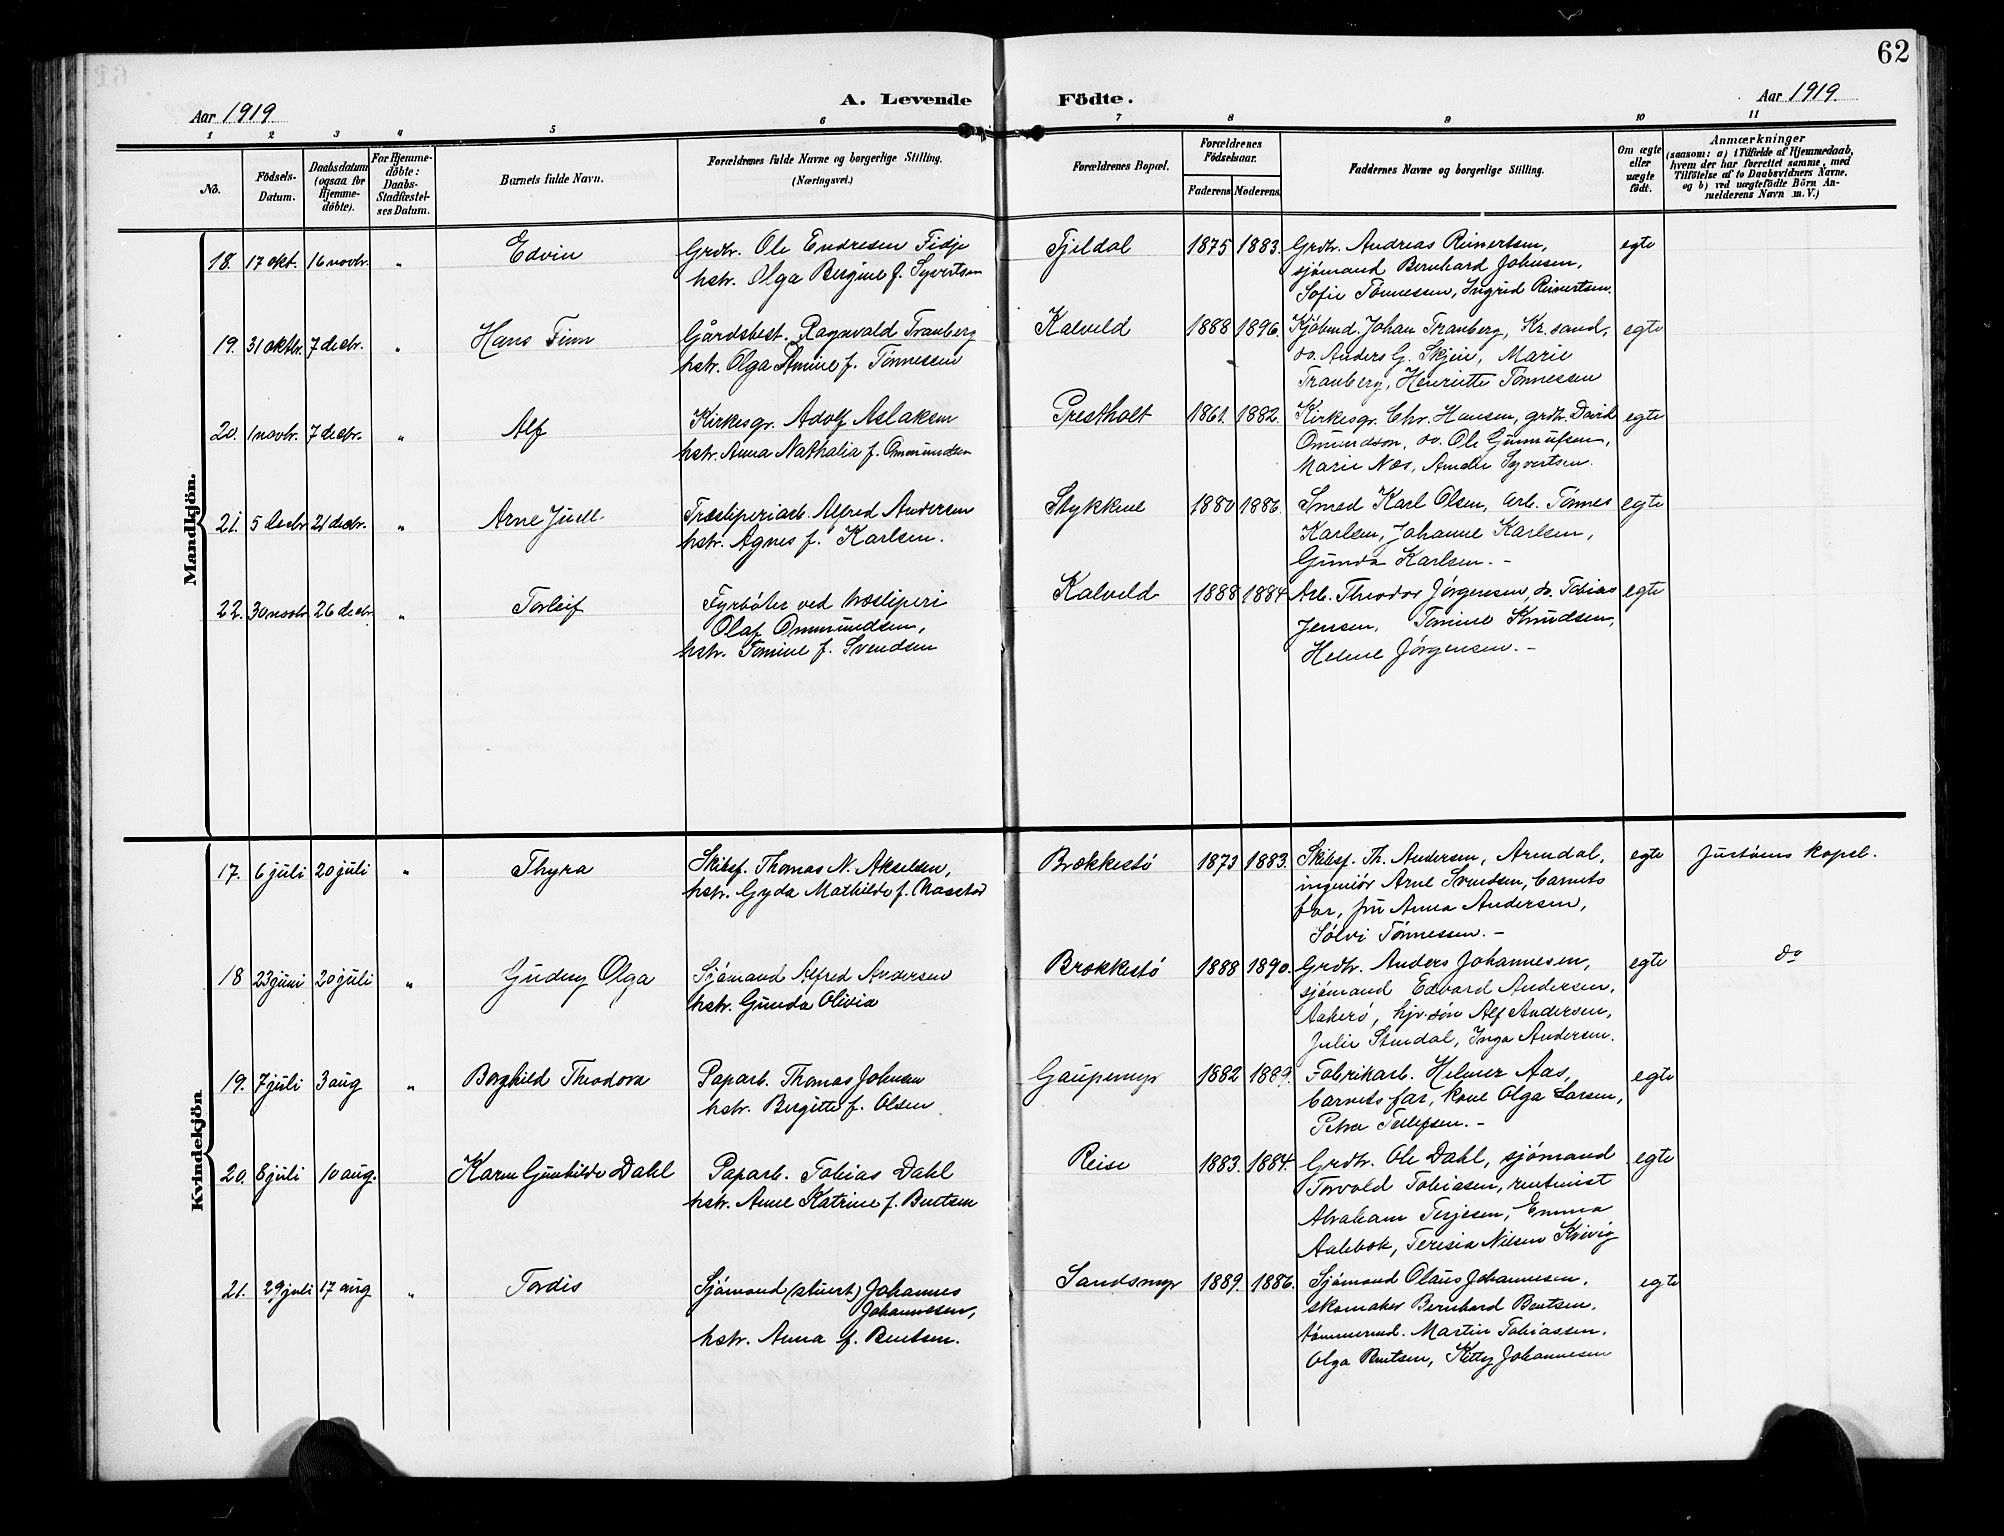 62
Aar 1919.
A. Levende Födte.
Aar 1919.
1 2 3 4 5 6 7 8 9 10 11
No.
Födsels-Datum.
Daabsdatum (ogsaa for Hjemme-döbte).
For Hjemme-döbte: Daabs-Stadfæstel-ses Datum.
Barnets fulde Navn.
Forældrenes fulde Navne og borgerlige Stilling. (Næringsvei.)
Forældrenes Bopæl.
Forældrenes Födselsaar.
Faderens. Moderens.
Faddernes Navne og borgerlige Stilling.
Om ægte eller uægte födt.
Anmærkninger
(saasom: a) i Tilfælde af Hjemmedaab,
hvem der har forrettet samme, med
Tilföielse af to Daabsvidners Navne.
og b) ved uægtefödte Börn An-
melderens Navn m. V.)
Mandkjön.
18. 17 okt. 16 novbr. " Edvin
Grdbr. Ole Endresen Fidje
hstr. Olga Bergine f. Syvertsen
Fjeldal 1875 1883.
Grdbr. Andreas Reinertsen,
sjömand Bernhard Johnsen,
Sofie Tönnesen, Ingrid Reinertsen.
egte
19. 31 oktbr. 7 decbr. " Hans Finn
Gårdsbest. Ragnvald Tranberg
hstr. Olga Amine f. Tönnessen
Kalveld 1888 1896.
Kjöbmd. Johan Tranberg, Kr.sand,
do. Anders G. Skjeie, Marie
Tranberg, Henriette Tönnessen
egte
20. 1 novbr. 7 decbr. " Alf
Kirkesgr. Adolf Aslaksen
hstr. Anna Nathalia f. Ommundsen
Prestholt 1861. 1882.
Kirkesgr. Chr. Hansen, grdbr. David
Omundson, do. Ole Gunnufsen,
Marie Næs, Amalie Syvertsen.
egte
21. 5 decbr. 21 decbr. " Arne Juell
Træsliperiarb. Alfred Andersen
hstr. Agnes f. Karlsen.
Stykkene 1880 1886.
Smed Karl Olsen, arb. Tönnes
Karlsen, Johanne Karlsen,
Gunda Karlsen. -
egte
22. 30 novbr. 26 decbr. " Torleif
Fyrböter ved træsliperi
Olaf Ommundsen,
hstr. Tomine f. Svendsen
Kalveld 1888 1884
Arb. Theodor Jörgensen, do. Tobias
Jensen, Tomine Knudsen,
Helene Jörgensen. -
egte
Kvindekjön
17. 6 juli 20 juli " Thyra
Skibsf. Thomas N. Akselsen,
hstr. Gyda Mathilde f.
Brækkestö 1873 1883.
Skibsf. Th. Andersen, Arendal,
ingeniör Arne Svendsen, barnets
far, fru Anna Andersen,
Sölvi Tönnessen. -
egte Justöens kapel.
18 23 juni 20 juli " Gudny Olga
Sjömand Alfred Andersen
hstr. Gunda Olivia
Brækkestö 1888 1890.
Grdbr. Anders Johannesen,
sjömand Edvard Andersen,
Aakerö, hjv. sön Alf Andersen,
Julie Stendal, Inga Andersen.
egte do
19. 7 juli 3 aug " Borghild Theodora
Paparb. Thomas Johnsen
hstr. Bergitte f. Olsen
Gaupemyr 1882 1889.
Fabrikarb. Helmer Aas,
barnets far, kone Olga Larsen,
Petra Tellefsen. -
egte
20. 8 juli 10 aug. Karen Gunhilde Dahl
Paparb. Tobias Dahl
hstr. Anne Katrine f. Bentsen
Reise 1883. 1884.
Grdbr. Ole Dahl, sjömand
Torvald Tobiasen, rentenist
Abraham Terjesen, Emma
Aalebæk, Teresia Nilsen Kvivig
egte
21. 29 juli 17 aug " Tordis
Sjömand (stuert) Johannes
Johannesen,
hstr. Anna f. Bentsen.
Sandsmyr 1889. 1886.
Sjömand Olaus Johannesen,
skomaker Bernhard Bentsen,
tömmermd. Martin Tobiassen,
Olga Bentsen, Kitty Johannesen
egte